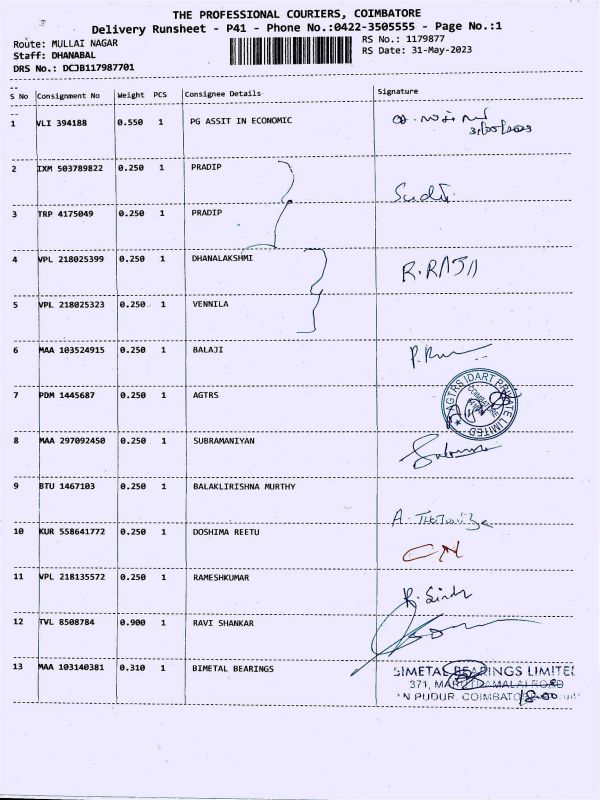 THE PROFESSIONAL COURIERS, COIMBATORE
Delivery Runsheet - P41 - Phone No.:0422-3505555 - Page No.:1
Route: MULLAI NAGAR RS No.: 1179877
Staff: DHANABAL RS Date: 31-May-2023
DRS No.: DCJB117987701
S No Consignment No Weight PCS Consignee Details Signature
1 VLI 394188 0.550 1 PG ASSIT IN ECONOMIC
31/05/2023
2 IXM 503789822 0.250 1 PRADIP
3 TRP 4175049 0.250 1 PRADIP
4 VPL 218025399 0.250 1 DHANALAKSHMI R.RAJA
5 VPL 218025323 0.250 1 VENNILA
6 MAA 103524915 0.250 1 BALAJI
7 PDM 1445687 0.250 1 AGTRS
AGTRS IDART PRIVATE LIMITED
COIMBATORE
8 MAA 297092450 0.250 1 SUBRAMANIYAN
9 BTU 1467103 0.250 1 BALAKLIRISHNA MURTHY
10 KUR 558641772 0.250 1 DOSHIMA REETU
11 VPL 218135572 0.250 1 RAMESHKUMAR
12 TVL 8508784 0.900 1 RAVI SHANKAR
13 MAA 103140381 0.310 1 BIMETAL BEARINGS
BIMETAL BEARINGS LIMITED
371, MARUTHAMALAI ROAD
N PUDUR, COIMBATORE